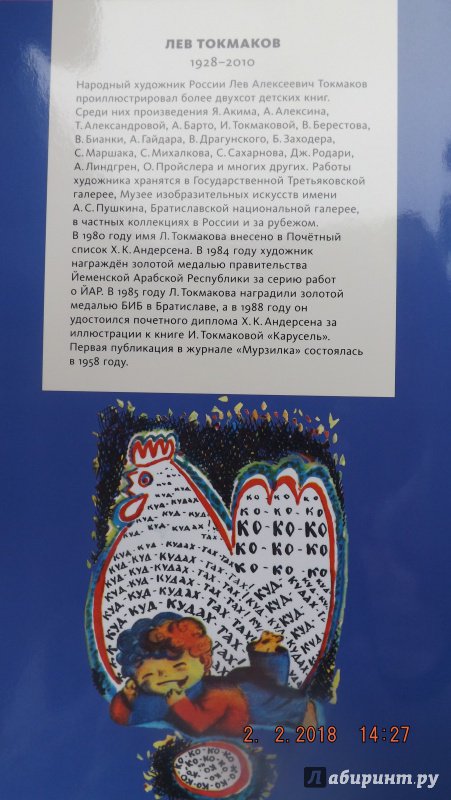 ЛЕВ ТОКМАКОВ
1928–2010
Народный художник России Лев Алексеевич Токмаков
проиллюстрировал более двухсот детских книг.
Среди них произведения Я. Акима, А. Алексина,
Т. Александровой, А. Барто, И. Токмаковой, В. Берестова,
В. Бианки, А. Гайдара, В. Драгунского, Б. Заходера,
С. Маршака, С. Михалкова, С. Сахарнова, Дж. Родари,
А. Линдгрен, О. Пройслера и многих других. Работы
художника хранятся в Государственной Третьяковской
галерее, Музее изобразительных искусств имени
А. С. Пушкина, Братиславской национальной галерее,
в частных коллекциях в России и за рубежом.
В 1980 году имя Л. Токмакова внесено в Почётный
список Х. К. Андерсена. В 1984 году художник
награждён золотой медалью правительства
Йеменской Арабской Республики за серию работ
о ЙАР. В 1985 году Л. Токмакова наградили золотой
медалью БИБ в Братиславе, а в 1988 году он
удостоился почетного диплома Х. К. Андерсена за
иллюстрации к книге И. Токмаковой «Карусель».
Первая публикация в журнале «Мурзилка» состоялась
в 1958 году.
КО-КО
КО-КО-КО
КО-КО-КО
КО-КО-КО
КУД-КУД-КУДАХ
КУД-КУД-КУДАХ-ТАХ-ТАХ!
КУД-КУД-КУДАХ-ТАХ-ТАХ!
КУД-КУД-КУДАХ ТАХ
2. 2. 2018 14:27
Лабиринт.ру